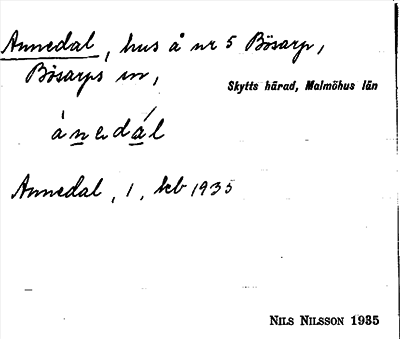 Annedal, hus å nr 5 Bösarp,
Bösarps sn,
Skytts härad, Malmöhus län
ànedál
Annedal, 1, kb 1935
NILS NILSSON 1935